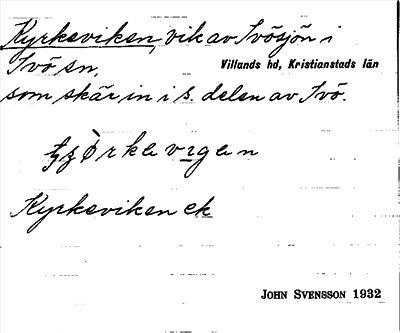 Kyrkeviken, vik av Ivösjön i
Ivö sn,
Villands hd, Kristianstads län
som skär in i s. delen av Ivö.
Kyrkeviken ek
JOHN SVENSSON 1932